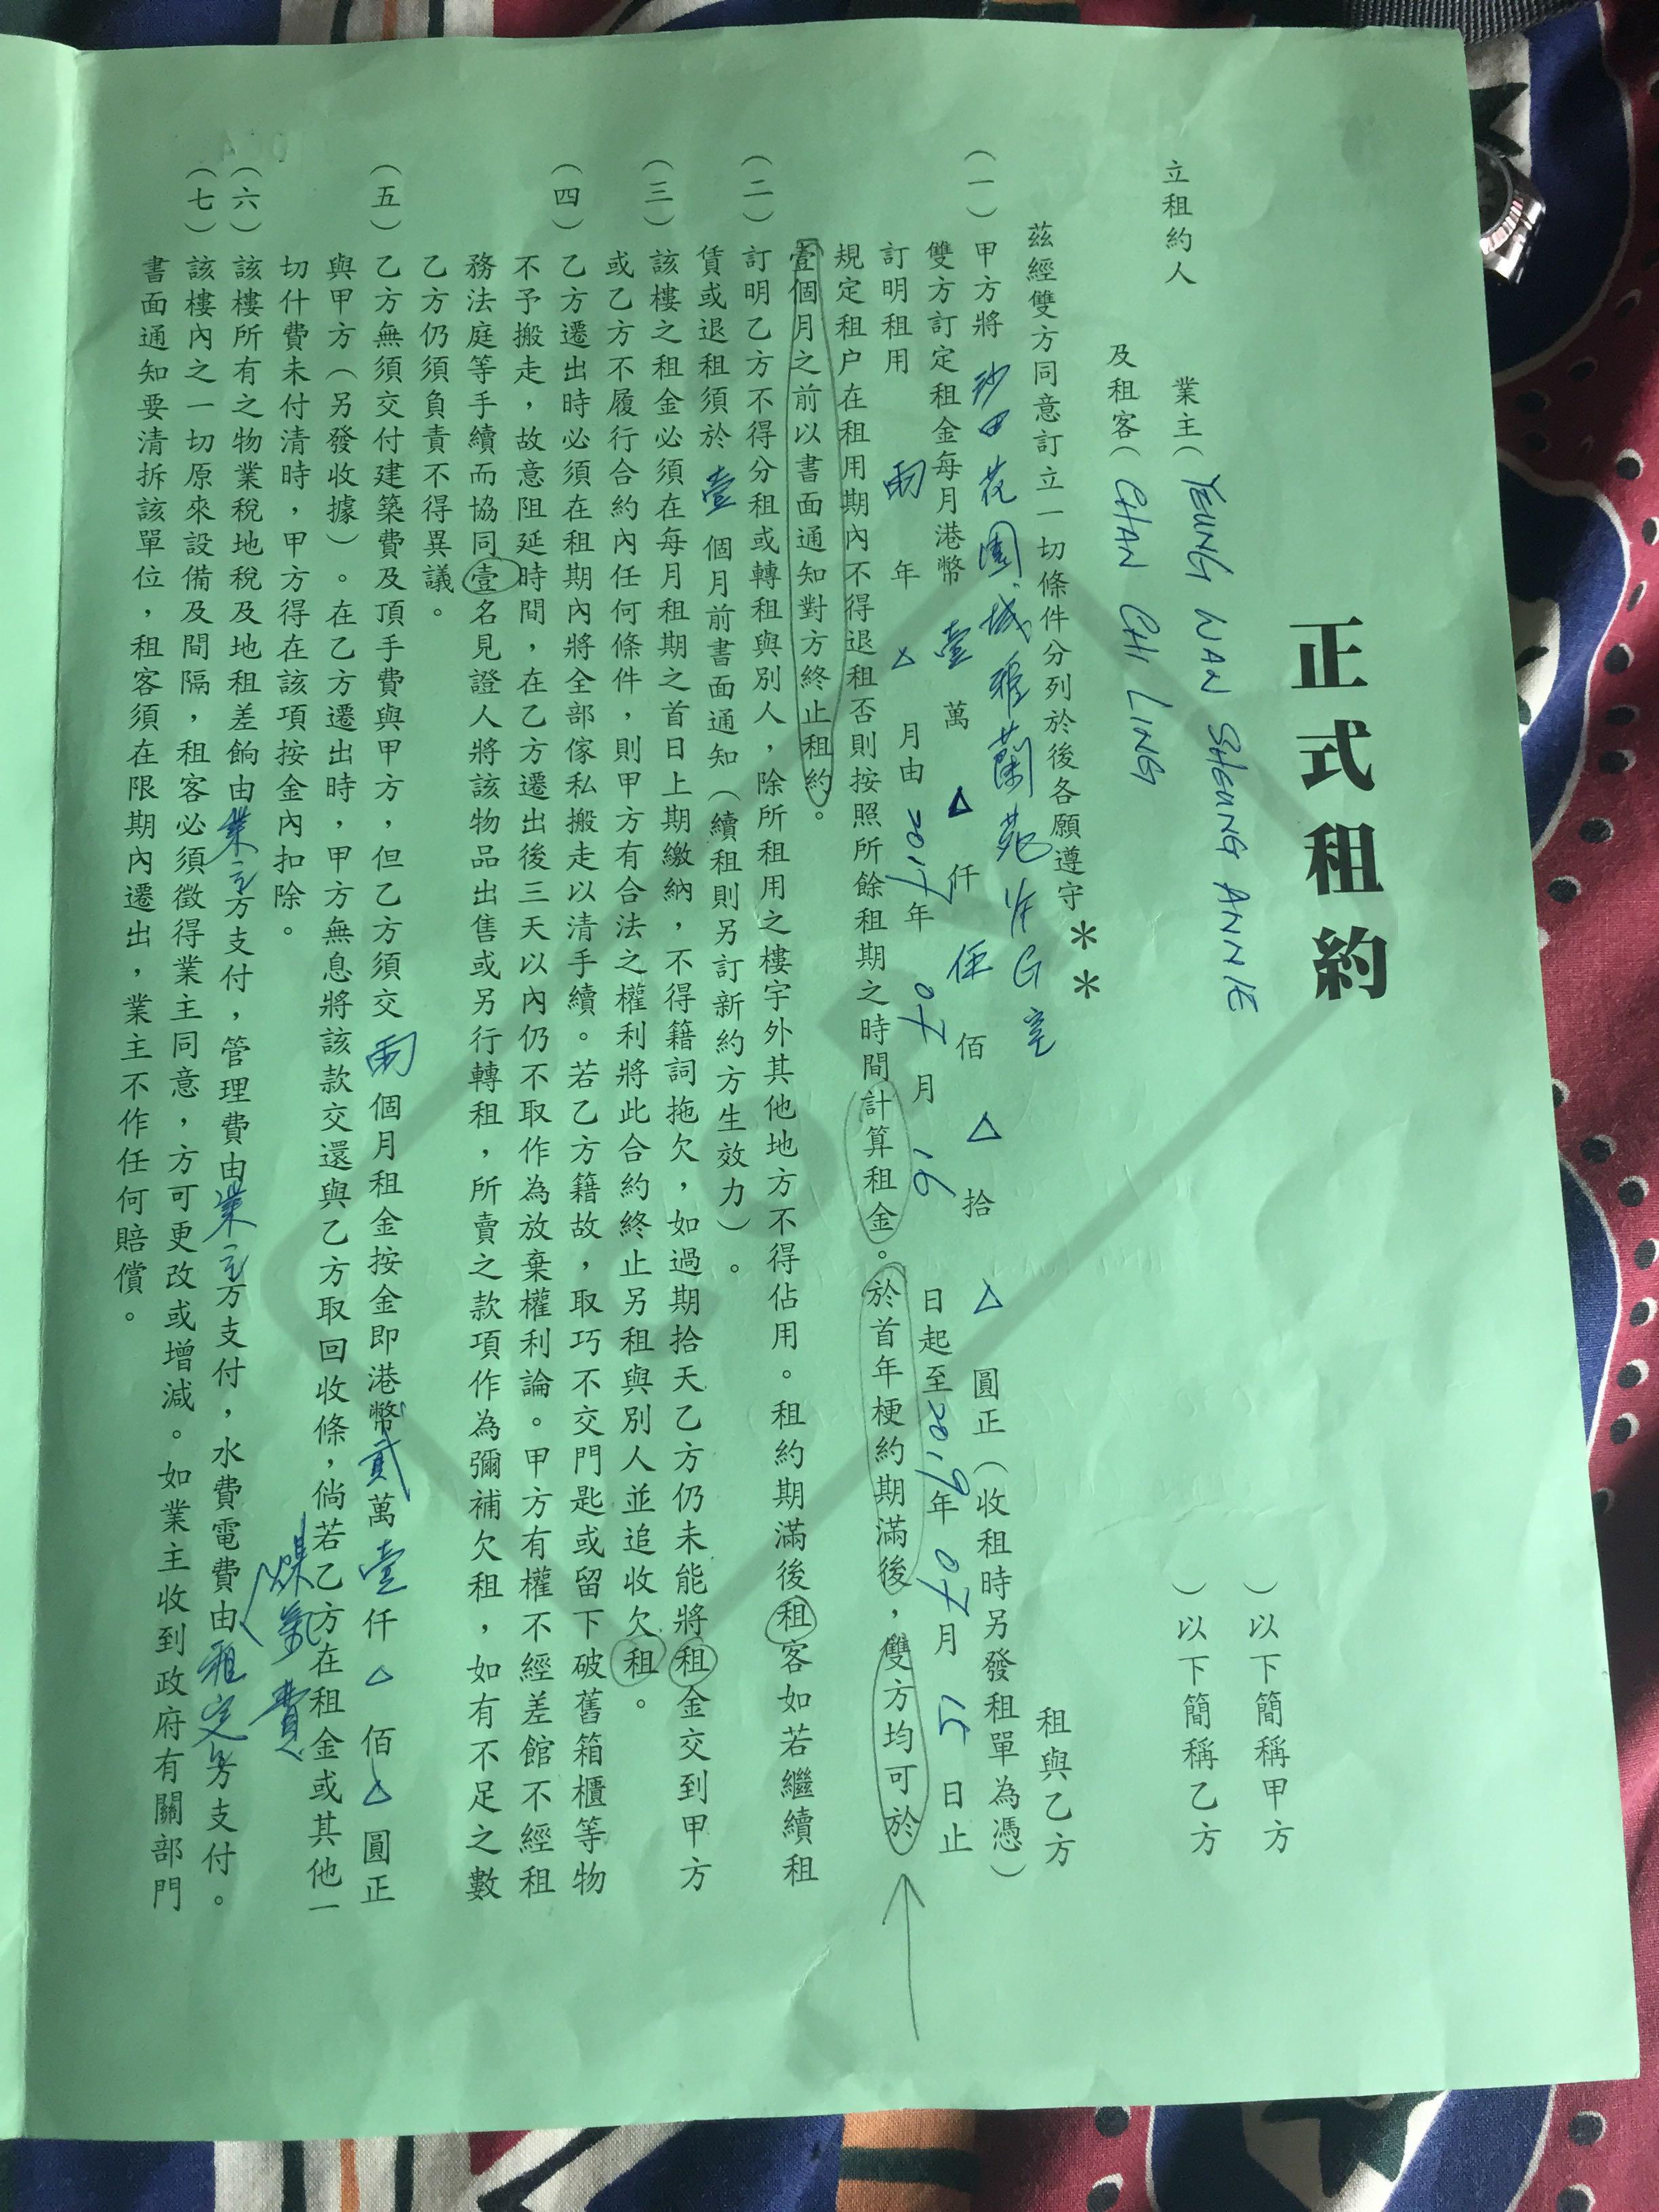 正式租約
立租約人 業主（YEUNG WAN SHEUNG ANNIE ）以下簡稱甲方
及租客（CHAN CHI LING ）以下簡稱乙方
茲經雙方同意訂立一切條件分列於後各願遵守＊＊
（一）甲方將 沙田花園城雅蘭苑 G室 租與乙方
雙方訂定租金每月港幣 壹 萬 △ 仟 伍 佰 △ 拾 △ 圓正（收租時另發租單為憑）
訂明租用 兩 年 △ 月由2017年 07 月 16 日起至2019年 07 月 15 日止
規定租户在租用期內不得退租否則按照所餘租期之時間計算租金。於首年梗約期滿後，雙方均可於
壹個月之前以書面通知對方終止租約。
（二）訂明乙方不得分租或轉租與別人，除所租用之樓宇外其他地方不得佔用。租約期滿後租客如若繼續租
賃或退租須於 壹 個月前書面通知（續租則另訂新約方生效力）。
（三）該樓之租金必須在每月租期之首日上期繳納，不得籍詞拖欠，如過期拾天乙方仍未能將租金交到甲方
或乙方不履行合約內任何條件，則甲方有合法之權利將此合約終止另租與別人並追收欠租。
（四）乙方遷出時必須在租期內將全部傢私搬走以清手續。若乙方籍故，取巧不交門匙或留下破舊箱櫃等物
不予搬走，故意阻延時間，在乙方遷出後三天以內仍不取作為放棄權利論。甲方有權不經差館不經租
務法庭等手續而協同壹名見證人將該物品出售或另行轉租，所賣之款項作為彌補欠租，如有不足之數
乙方仍須負責不得異議。
（五）乙方無須交付建築費及頂手費與甲方，但乙方須交 兩 個月租金按金即港幣貳萬 壹 仟 △ 佰 △ 圓正
與甲方（另發收據）。在乙方遷出時，甲方無息將該款交還與乙方取回收條，倘若乙方在租金或其他一
切什費未付清時，甲方得在該項按金內扣除。
煤氣費
（六）該樓所有之物業稅地稅及地租差餉由業主方支付，管理費由業主方支付，水費電費由租客方支付。
（七）該樓內之一切原來設備及間隔，租客必須徵得業主同意，方可更改或增減。如業主收到政府有關部門
書面通知要清拆該單位，租客須在限期內遷出，業主不作任何賠償。
COPY